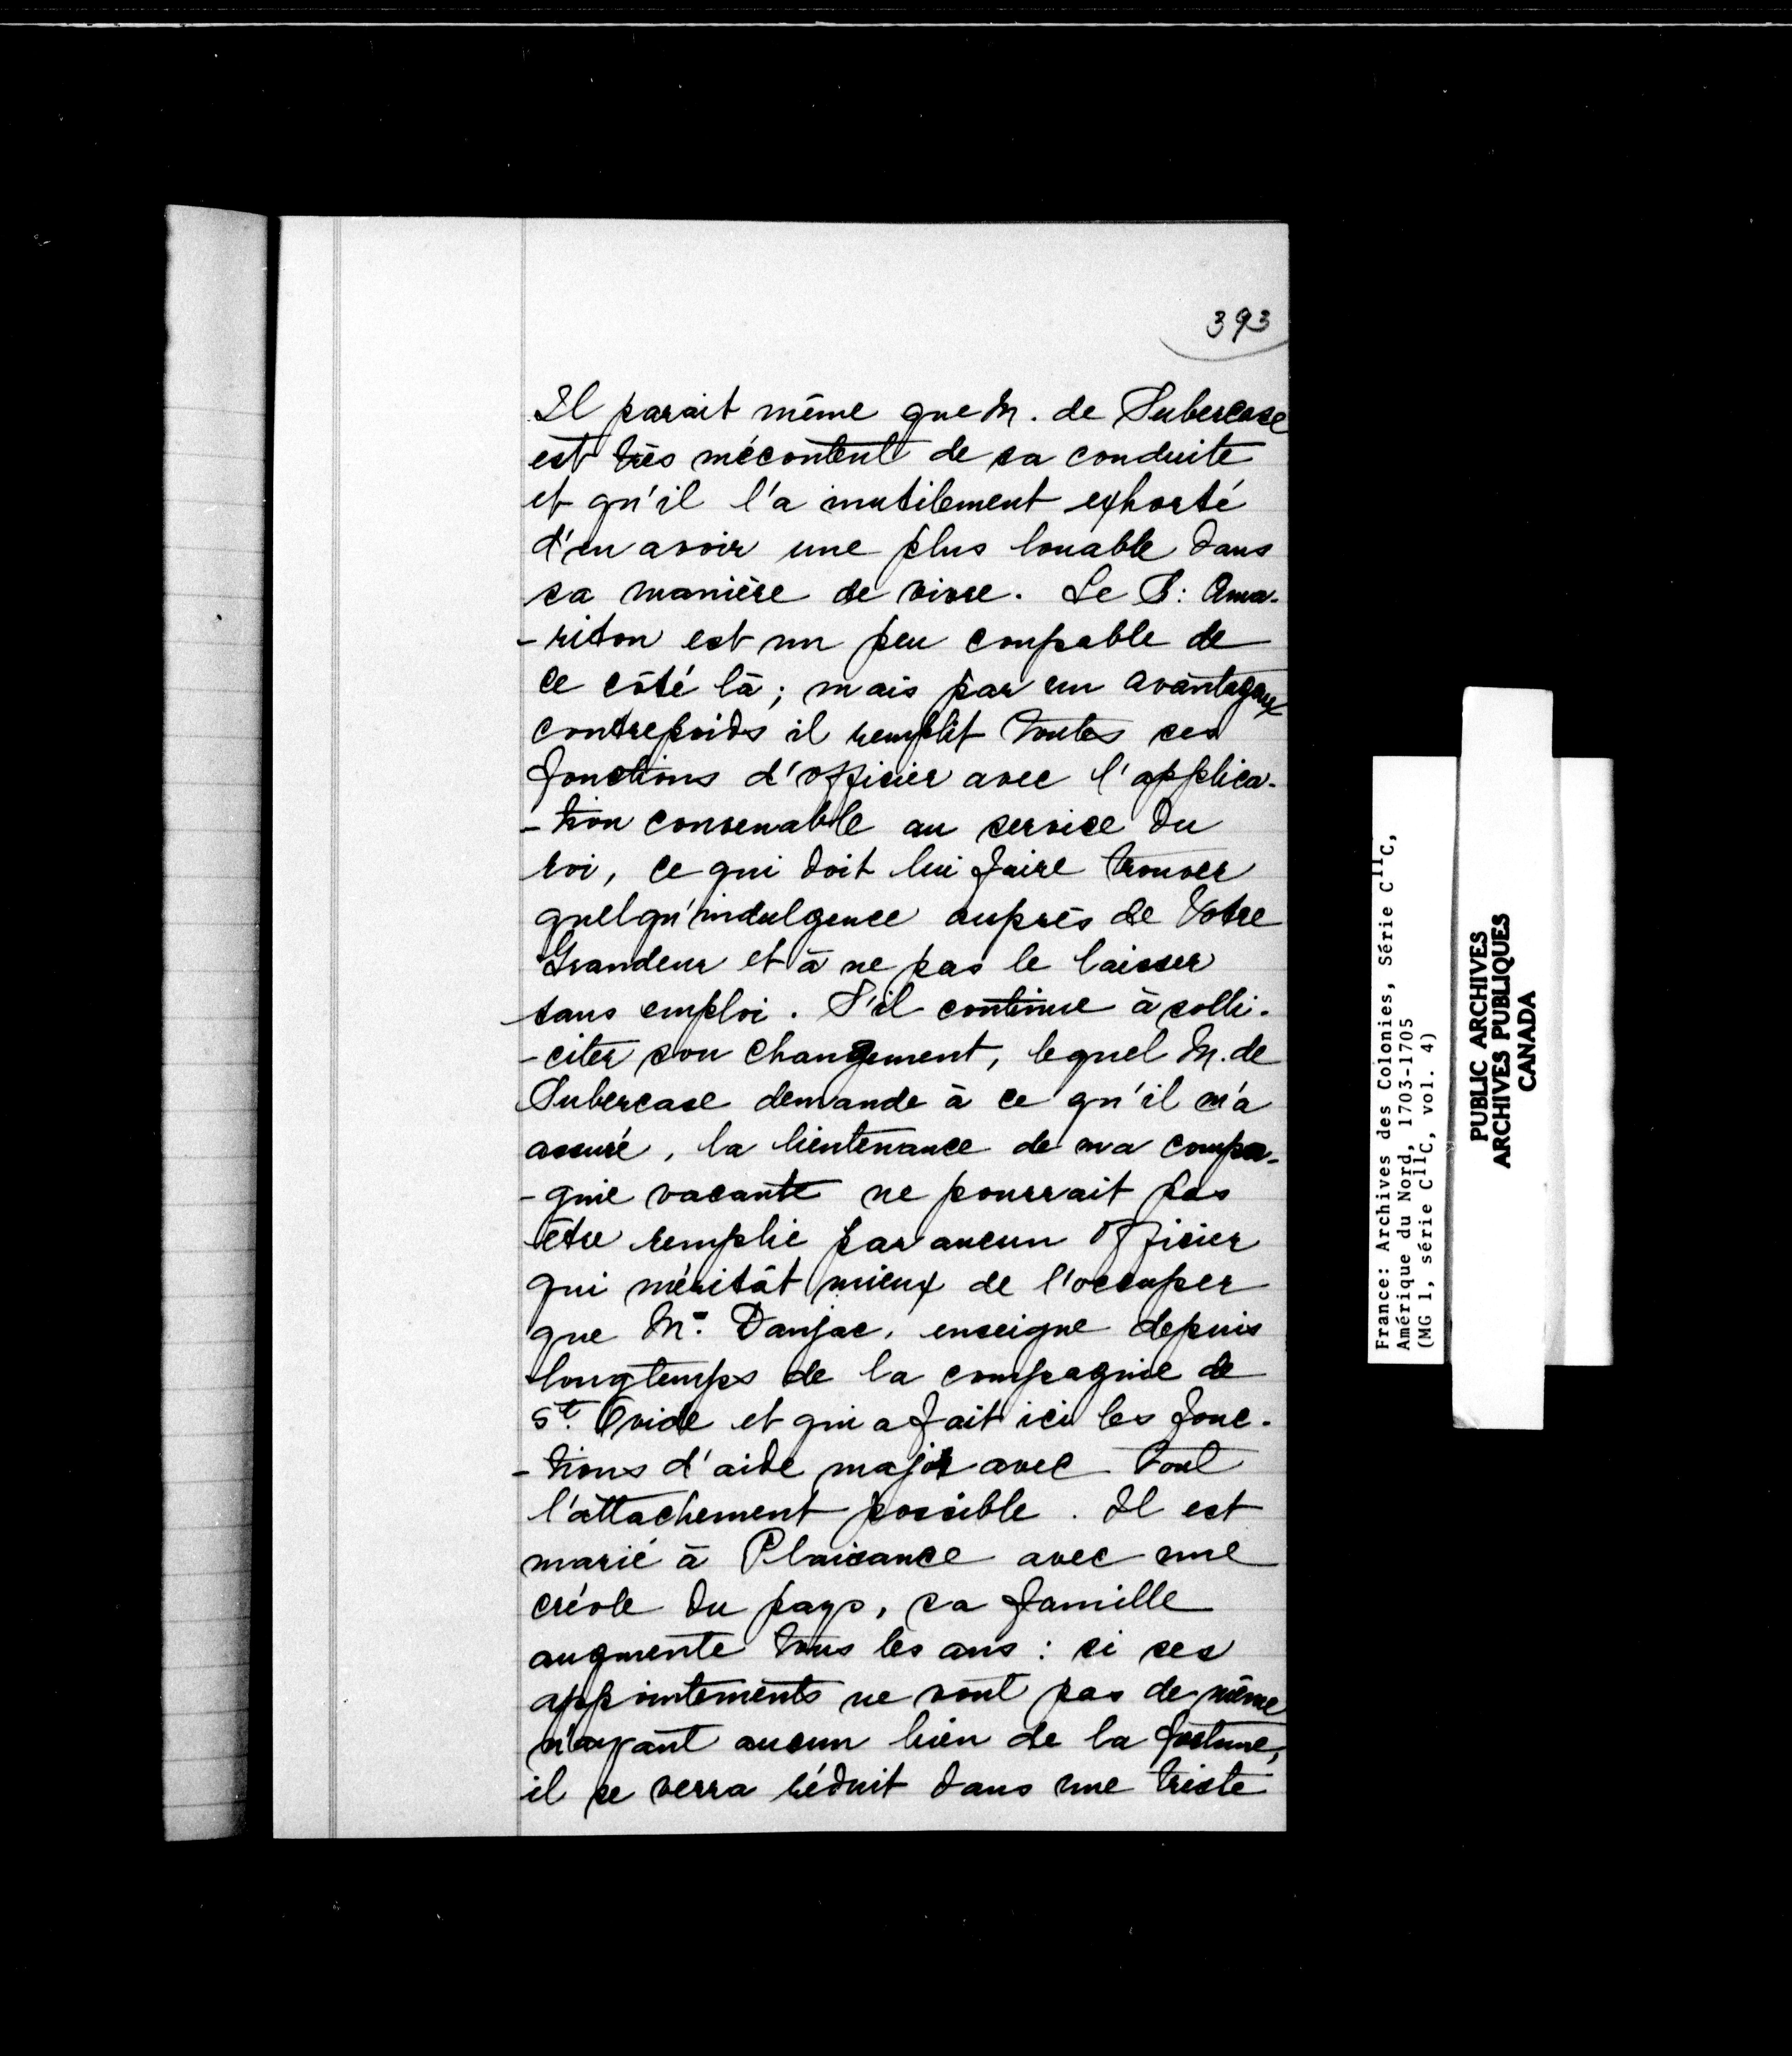 393
Il parait même que M. de Subercase
est très mécontent de sa conduite
et qu'il l'a inutilement exhorté
d'en avoir une plus louable dans
sa manière de vivre. Le S: Ama-
-riton est un peu coupable de
ce côté là; mais par un avantageux
contrepoids il remplit toutes ses
fonctions d'officier avec l'applica-
-tion convenable au service du
roi, ce qui doit lui faire trouver
quelqu'indulgence auprès de Votre
Grandeur et à ne pas le laisser
sans emploi. S'il continue à solli-
-citer son changement, lequel M. de
Subercase demande à ce qu'il m'a
assuré, la lieutenance de ma compa-
-gnie vacante ne pourrait pas
être remplie par aucun officier
qui méritât mieux de l'occuper
que Mr. Danjac, enseigne depuis
longtemps de la compagnie de
St. Ovide et qui a fait ici les fonc-
-tions d'aide major avec tout
l'attachement possible. Il est
marié à Plaisance avec une
créole du pays, sa famille
augmente tous les ans: si ses
appointements ne vont pas de même
n'ayant aucun bien de la fortune,
il se verra réduit dans une triste
France: Archives des Colonies, Série C11C,
Amérique du Nord, 1703-1705
(MG 1, série C11C, vol. 4)
PUBLIC ARCHIVES
ARCHIVES PUBLIQUES
CANADA